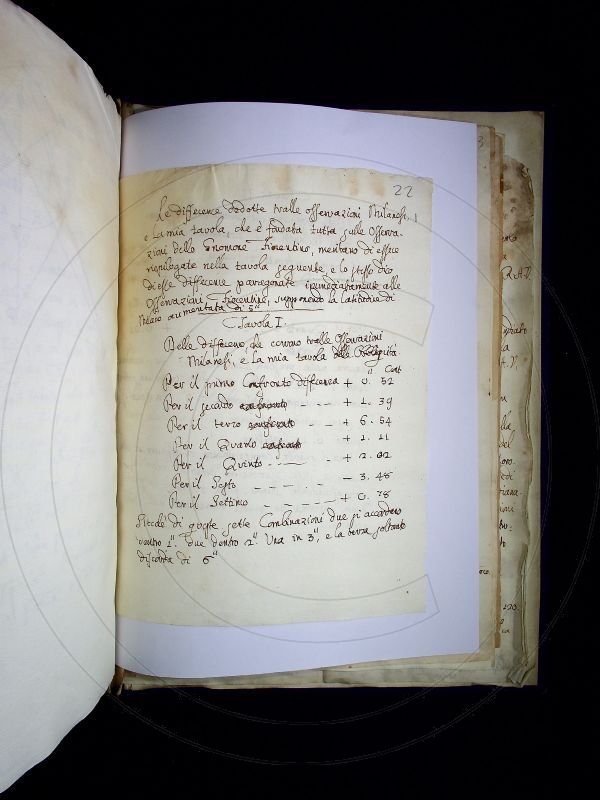 22
Le differenze dedotte tralle osservazioni Milanesi,
e la mia tavola, che è fondata tutta sulle osserva-
zioni dello Gnomone Fiorentino, meritano di essere
riepilogate nella tavola seguente, e lo stesso dico
di esse differenze paragonate immediatamente alle
Osservazioni Fiorentine, supponendo la latitudine di
Milano aumentata di 5"
Tavola I
Delle differenze, che corrono tralle Osservazioni
Milanesi, e la mia tavola delle Obliquità
" Cent
Per il primo Confronto differenza + 0. 52
Per il secondo confronto - - - + 1. 39
Per il terzo confronto - - + 6. 54
Per il Quarto confronto + 1. 11
Per il Quinto - - - + 2. 02
Per il Sesto - - - - - 3. 48
Per il Settimo - - - - + 0. 78
di queste sette Combinazioni due si accordano
dentro 1". due dentro 2". Una in 3", e la terza soltanto
discorda di 6"